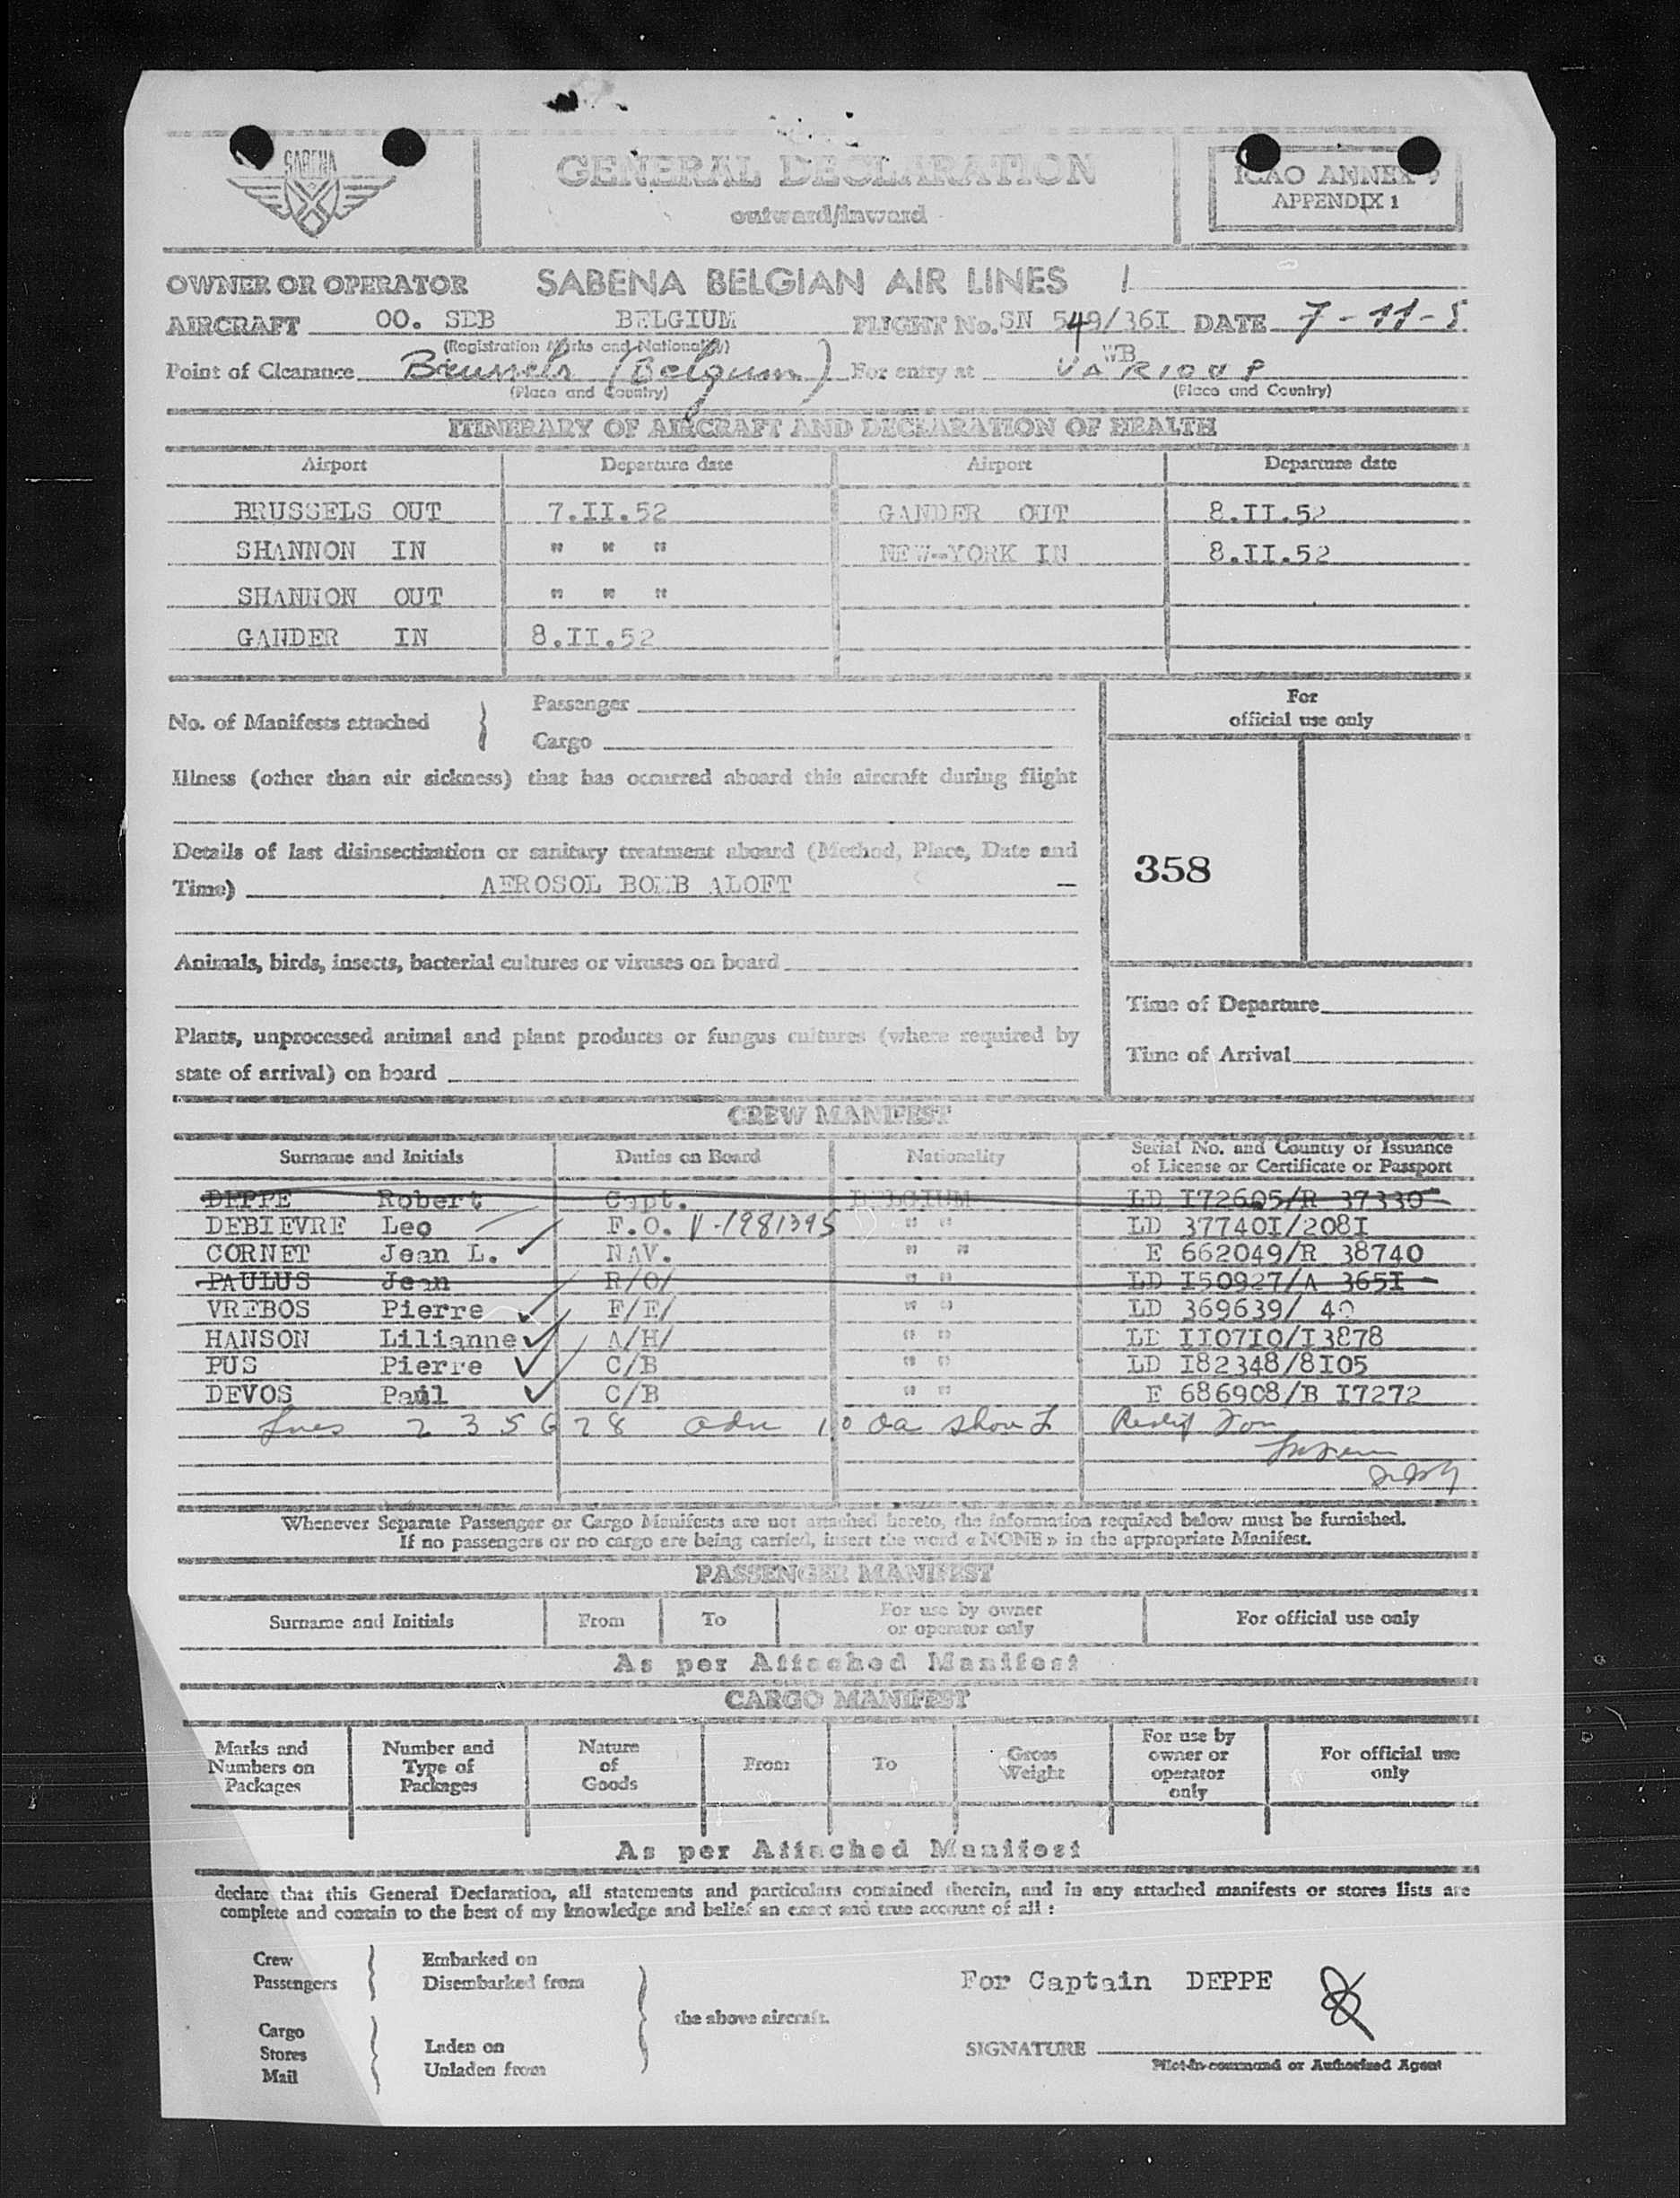 SABENA
GENERAL DECLARATION
outward/inward
ICAO ANNEX 9
APPENDIX 1
OWNER OR OPERATOR SABENA BELGIAN AIR LINES
AIRCRAFT OO. SDB BELGIUM FLIGHT No. SN 549/36I DATE 7-11-5
(Registration Marks and Nationality)
WB
Point of Clearance Brussels (Belgium) For entry at VARIOUS
(Place and Country) (Place and Country)
ITINERARY OF AIRCRAFT AND DECLARATION OF HEALTH
Airport Departure date Airport Departure date
BRUSSELS OUT 7.II.52 GANDER OUT 8.II.52
SHANNON IN " " " NEW-YORK IN 8.II.52
SHANNON OUT " " "
GANDER IN 8.II.52
No. of Manifests attached Passenger
Cargo
For
official use only
Illness (other than air sickness) that has occurred aboard this aircraft during flight
Details of last disinsectization or sanitary treatment aboard (Method, Place, Date and
Time) AEROSOL BOMB ALOFT
358
Animals, birds, insects, bacterial cultures or viruses on board
Time of Departure
Plants, unprocessed animal and plant products or fungus cultures (where required by
state of arrival) on board
Time of Arrival
CREW MANIFEST
Surname and Initials Duties on Board Nationality Serial No. and Country of Issuance
of License or Certificate or Passport
DEPPE Robert Capt. BELGIUM LD I72605/R 37330
DEBIEVRE Leo F.O. V-1981395 " " LD 37740I/208I
CORNET Jean L. NAV. " " E 662049/R 38740
PAULUS Jean R/O/ " " LD I50927/A 365I
VREBOS Pierre F/E/ " " LD 369639/ 40
HANSON Lilianne A/H/ " " LD II07I0/I3878
PUS Pierre C/B " " LD I82348/8I05
DEVOS Paul C/B " " E 686908/B I7272
2 3 5 6 7 8
Whenever Separate Passenger or Cargo Manifests are not attached hereto, the information required below must be furnished.
If no passengers or no cargo are being carried, insert the word « NONE » in the appropriate Manifest.
PASSENGER MANIFEST
Surname and Initials From To For use by owner
or operator only For official use only
As per Attached Manifest
CARGO MANIFEST
Marks and
Numbers on
Packages
Number and
Type of
Packages
Nature
of
Goods
From To Gross
Weight
For use by
owner or
operator
only
For official use
only
As per Attached Manifest
declare that this General Declaration, all statements and particulars contained therein, and in any attached manifests or stores lists are
complete and contain to the best of my knowledge and belief an exact and true account of all :
Crew
Passengers
Embarked on
Disembarked from
For Captain DEPPE
the above aircraft.
Cargo
Stores
Mail
Laden on
Unladen from
SIGNATURE
Pilot-in-command or Authorised Agent